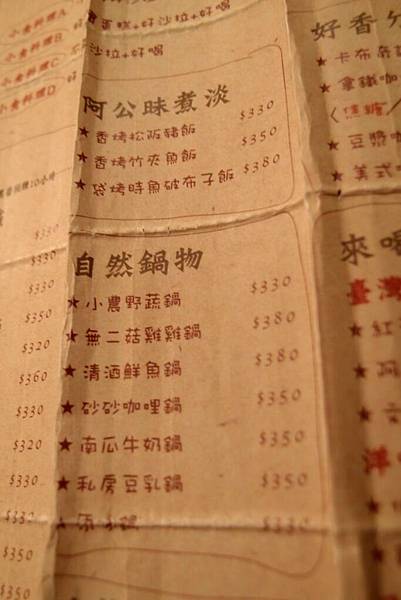 小食料理A
小食料理B
小食料理C
小食料理D
蛋糕+好沙拉+好喝
沙拉+好喝
阿公昧煮淡
★香烤松阪豬飯 $330
★香烤竹夾魚飯 $350
★袋烤時魚破布子飯 $380
自然鍋物
★小農野蔬鍋 $330
★無二菇雞雞鍋 $380
★清酒鮮魚鍋 $380
★砂砂咖哩鍋 $350
★南瓜牛奶鍋 $350
★私房豆乳鍋 $350
$330
$330
$330
$330
$350
$320
$360
$330
$320
$330
$330
$350
$350
好香
★卡布奇諾
★拿鐵咖
〈焦糖/
★豆漿咖
★美式
來喝
臺灣
★紅
★阿
★
洋